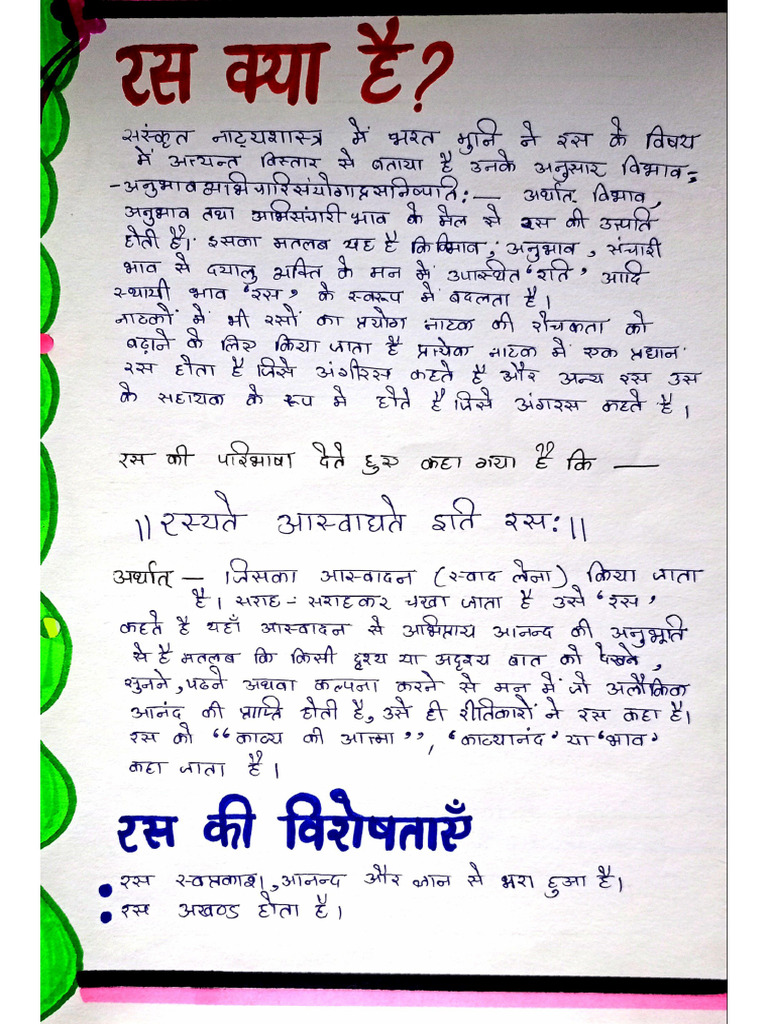 रस क्या है?
संस्कृत नाट्यशास्त्र में भरत मुनि ने रस के विषय
में अत्यन्त विस्तार से बताया है उनके अनुसार विभाव:
-अनुभावअभिचारिसंयोगाद्रसनिष्पाति:— अर्थात विभाव,
अनुभाव तथा अभिसंचारी भाव के मेल से रस की उत्पति
होती है। इसका मतलब यह है कि विभाव, अनुभाव, संचारी
भाव से दयालु व्यक्ति के मन में उपास्थित 'रति' आदि
स्थायी भाव 'रस' के स्वरूप में बदलता है।
नाटकों में भी रसों का प्रयोग नाटक की रोचकता को
बढ़ाने के लिए किया जाता है प्रात्येक नाटक में एक प्रधान
रस होता है जिसे अंगीरस कहते है और अन्य रस उस
के सहायक के रूप मे होते है जिसे अंगरस कहते है।
रस की परिभाषा देते हुए कहा गया है कि —
||रस्यते आस्वाद्यते इति रस:||
अर्थात् — जिसका आस्वादन (स्वाद लेना) किया जाता
है। सराह- सराहकर चखा जाता है उसे 'रस'
कहते है यहाँ आस्वादन से अभिप्राय आनन्द की अनुभूति
से है मतलब कि किसी दृश्य या अदृश्य बात को देखने,
सुनने, पढने अथवा कल्पना करने से मन में जो अलौकिक
आनंद की प्राप्ति होती है, उसे ही रीतिकारों ने रस कहा है।
रस को "काव्य की आत्मा", 'काव्यानंद' या 'भाव'
कहा जाता है।
रस की विशेषताएँ
रस स्वप्रकाश, आनन्द और ज्ञान से भरा हुआ है।
रस अखण्ड होता है।